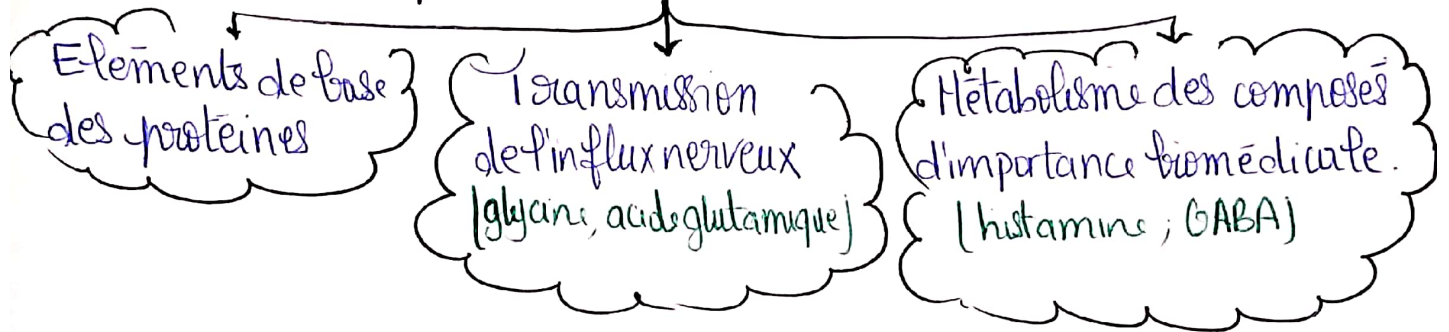 Eléments de base
des protéines
Transmission
de l'influx nerveux
(glycine, acide glutamique)
Métabolisme des composés
d'importance biomédicale.
(histamine ; GABA)